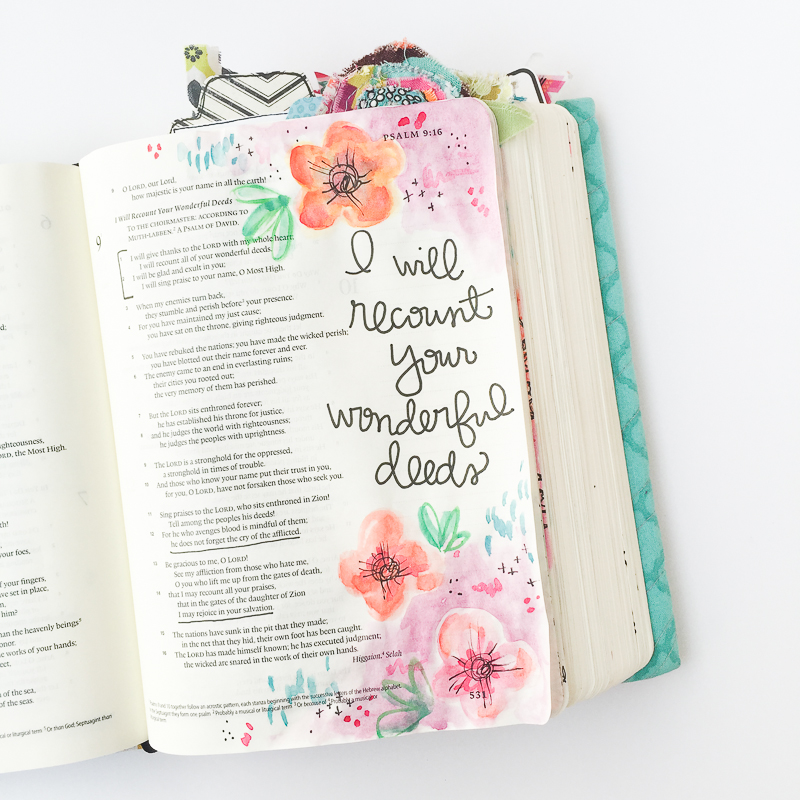 6
7
ghteousness,
ORD, the Most High.
th!
your foes,
of your fingers,
ve set in place,
him?
han the heavenly beings⁵
onor.
e works of your hands;
eet,
of the sea,
of the seas.
⁵ Or than God; Septuagint than
PSALM 9:16
9 O LORD, our Lord,
how majestic is your name in all the earth!
I Will Recount Your Wonderful Deeds
TO THE CHOIRMASTER: ACCORDING TO
MUTH-LABBEN.² A PSALM OF DAVID.
9
1 I will give thanks to the LORD with my whole heart;
I will recount all of your wonderful deeds.
2 I will be glad and exult in you;
I will sing praise to your name, O Most High.
3 When my enemies turn back,
they stumble and perish before³ your presence.
4 For you have maintained my just cause;
you have sat on the throne, giving righteous judgment.
5 You have rebuked the nations; you have made the wicked perish;
you have blotted out their name forever and ever.
6 The enemy came to an end in everlasting ruins;
their cities you rooted out;
the very memory of them has perished.
7 But the LORD sits enthroned forever;
he has established his throne for justice,
8 and he judges the world with righteousness;
he judges the peoples with uprightness.
9 The LORD is a stronghold for the oppressed,
a stronghold in times of trouble.
10 And those who know your name put their trust in you,
for you, O LORD, have not forsaken those who seek you.
11 Sing praises to the LORD, who sits enthroned in Zion!
Tell among the peoples his deeds!
12 For he who avenges blood is mindful of them;
he does not forget the cry of the afflicted.
13 Be gracious to me, O LORD!
See my affliction from those who hate me,
O you who lift me up from the gates of death,
14 that I may recount all your praises,
that in the gates of the daughter of Zion
I may rejoice in your salvation.
15 The nations have sunk in the pit that they made;
in the net that they hid, their own foot has been caught.
16 The LORD has made himself known; he has executed judgment;
the wicked are snared in the work of their own hands.
Higgaion.⁴ Selah
together follow an acrostic pattern, each stanza beginning with the successive letters of the Hebrew alphabet.
Septuagint they form one psalm. ² Probably a musical or liturgical term ³ Or because of ⁴ Probably a musical or
liturgical term
531
I will
recount
your
wonderful
deeds